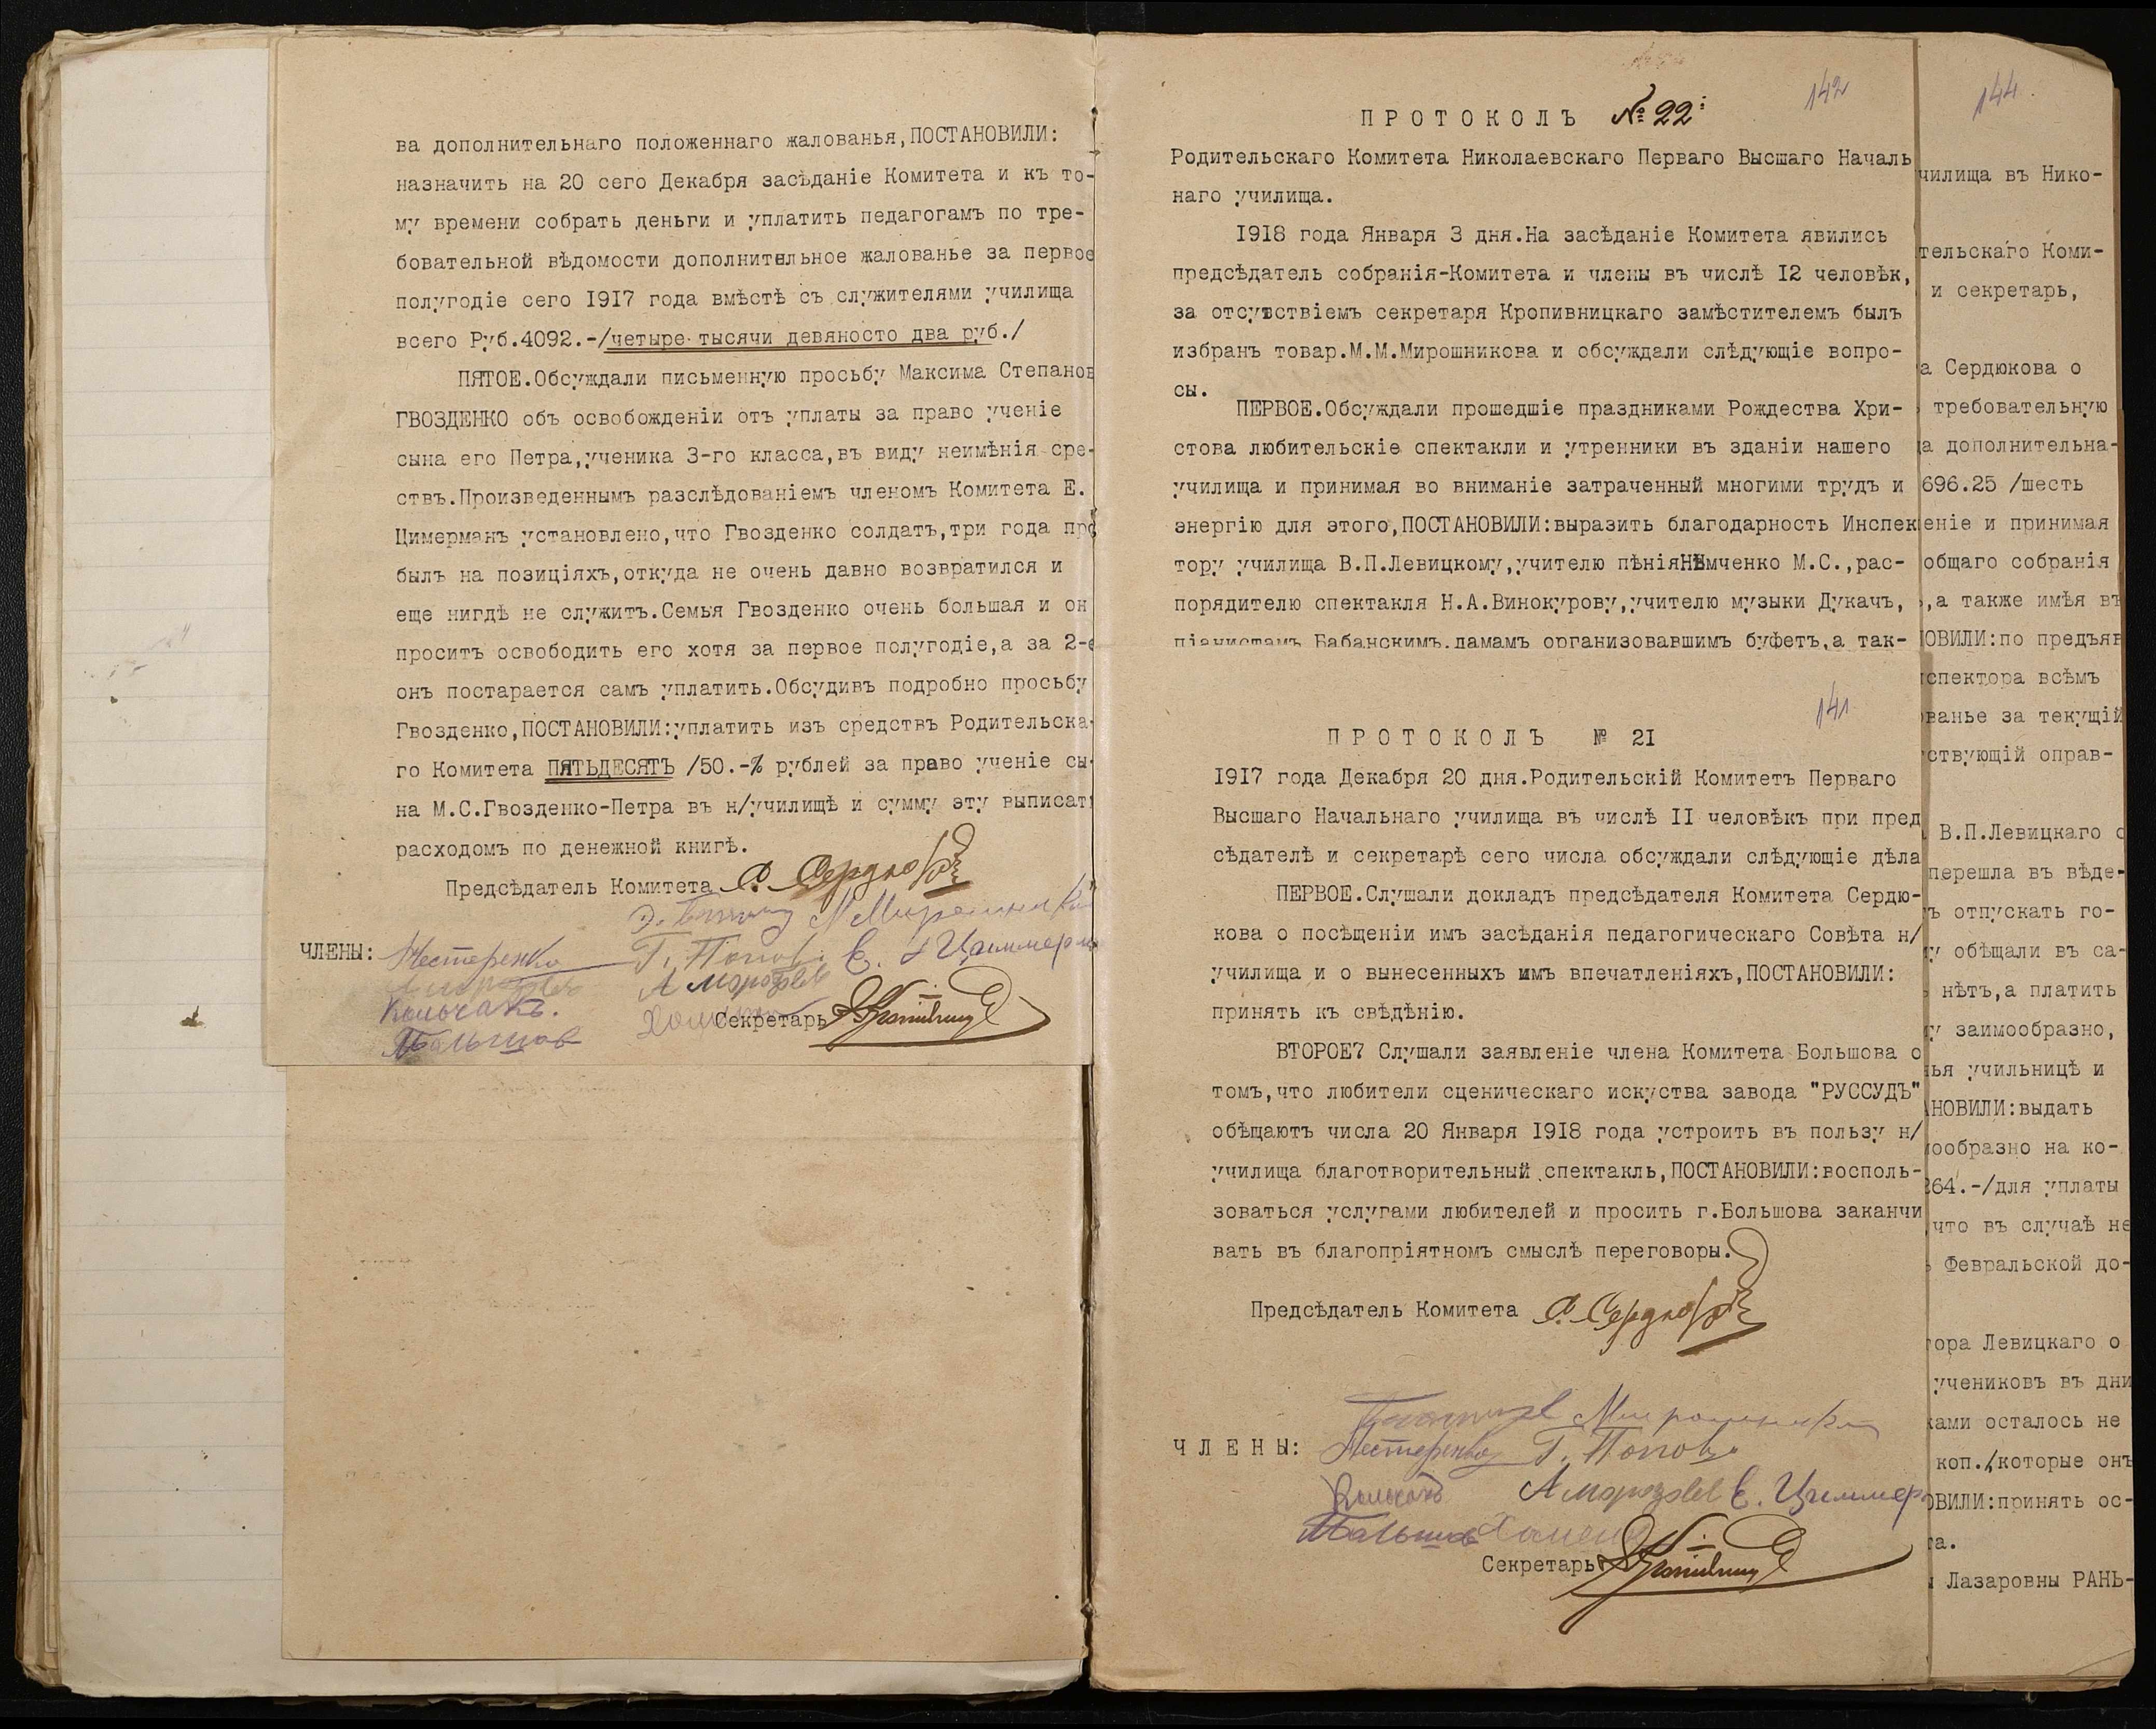 ва дополнительнаго положеннаго жалованья,ПОСТАНОВИЛИ:
назначить на 20 сего Декабря засѣданіе Комитета и къ то-
му времени собрать деньги и уплатить педагогамъ по тре-
бовательной вѣдомости дополнительное жалованье за первое
полугодіе сего 1917 года вмѣстѣ съ служителями училища
всего Руб.4092.-/четыре тысячи девяносто два руб./
ПЯТОЕ.Обсуждали письменную просьбу Максима Степанов
ГВОЗДЕНКО объ освобожденіи отъ уплаты за право ученіе
сына его Петра,ученика 3-го класса,въ виду неимѣнія сре-
ствъ.Произведеннымъ разслѣдованіемъ членомъ Комитета Е.
Цимерманъ установлено,что Гвозденко солдатъ,три года про
былъ на позиціяхъ,откуда не очень давно возвратился и
еще нигдѣ не служитъ.Семья Гвозденко очень большая и он
проситъ освободить его хотя за первое полугодіе,а за 2-е
онъ постарается самъ уплатить.Обсудивъ подробно просьбу
Гвозденко,ПОСТАНОВИЛИ:уплатить изъ средствъ Родительска-
го Комитета ПЯТЬДЕСЯТЪ /50.-% рублей за право ученіе сы-
на М.С.Гвозденко-Петра въ н/училищѣ и сумму эту выписать
расходомъ по денежной книгѣ.
Предсѣдатель Комитета С. Сердюковъ
Мирошников
ЧЛЕНЫ: Нестеренко Г. Попов Е. Циммерма
А Морозов
Колочакъ.
Секретарь
Большов
142
ПРОТОКОЛЪ № 22
Родительскаго Комитета Николаевскаго Перваго Высшаго Началь
наго училища.
1918 года Января 3 дня.На засѣданіе Комитета явились
предсѣдатель собранія-Комитета и члены въ числѣ 12 человѣк,
за отсутствіемъ секретаря Кропивницкаго замѣстителемъ былъ
избранъ товар.М.М.Мирошникова и обсуждали слѣдующіе вопро-
сы.
ПЕРВОЕ.Обсуждали прошедшіе праздниками Рождества Хри-
стова любительскіе спектакли и утренники въ зданіи нашего
училища и принимая во вниманіе затраченный многими трудъ и
энергію для этого,ПОСТАНОВИЛИ:выразить благодарность Инспек
тору училища В.П.Левицкому,учителю пѣнія Нѣмченко М.С.,рас-
порядителю спектакля Н.А.Винокурову,учителю музыки Дукачъ,
піанистамъ Бабанскимъ,дамамъ организовавшимъ буфетъ,а так-
141
ПРОТОКОЛЪ № 21
1917 года Декабря 20 дня.Родительскій Комитетъ Перваго
Высшаго Начальнаго училища въ числѣ II человѣкъ при пред
сѣдателѣ и секретарѣ сего числа обсуждали слѣдующіе дѣла
ПЕРВОЕ.Слушали докладъ предсѣдателя Комитета Сердю-
кова о посѣщеніи имъ засѣданія педагогическаго Совѣта н/
училища и о вынесенныхъ имъ впечатленіяхъ,ПОСТАНОВИЛИ:
принять къ свѣдѣнію.
ВТОРОЕ7 Слушали заявленіе члена Комитета Большова о
томъ,что любители сценическаго искуства завода "РУССУДЪ"
обѣщаютъ числа 20 Января 1918 года устроить въ пользу н/
училища благотворительный спектакль,ПОСТАНОВИЛИ:восполь-
зоваться услугами любителей и просить г.Большова заканчи
вать въ благопріятномъ смыслѣ переговоры.
Предсѣдатель Комитета С. Сердюковъ
Мирошников
ЧЛЕНЫ: Нестеренко Г. Попов
А Морозов Е. Циммер
Большов
Секретарь
144.
чилища въ Нико-
тельскаго Коми-
и секретарь,
а Сердюкова о
требовательную
да дополнительна-
696.25 /шесть
еніе и принимая
общаго собранія
,а также имѣя въ
ОВИЛИ:по предъяв
спектора всѣмъ
ованье за текущій
ствующій оправ-
В.П.Левицкаго о
перешла въ вѣде-
ъ отпускать го-
у обѣщали въ са-
нѣтъ,а платить
у заимообразно,
нья учильницѣ и
АНОВИЛИ:выдать
ообразно на ко-
264.-/для уплаты
что въ случаѣ не
Февральской до-
тора Левицкаго о
учениковъ въ дни
ками осталось не
коп./,которые онъ
ОВИЛИ:принять ос-
та.
Лазаровны РАНЬ-